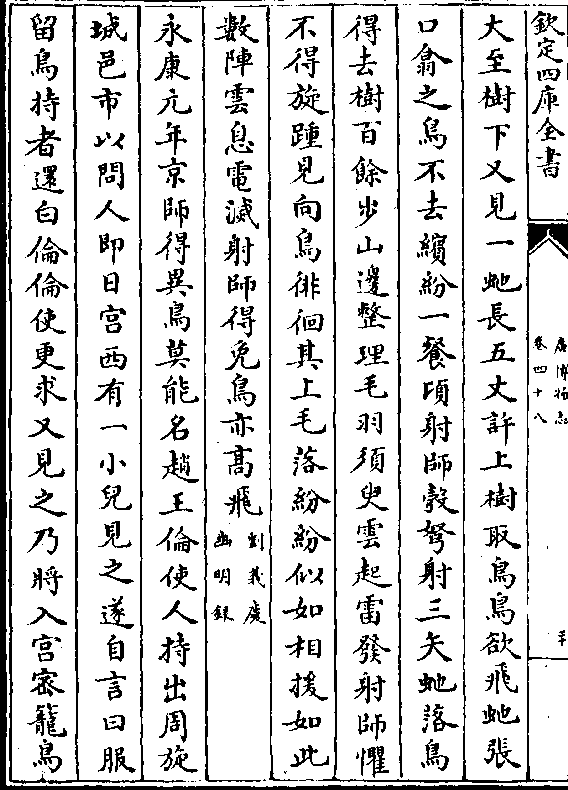 欽定四庫全書
廣博物志
卷四十八
大至樹下又見一虵長五丈許上樹取鳥鳥欲飛虵張
口翕之鳥不去繽紛一餐頃射師彀弩射三矢虵落鳥
得去樹百餘步山邊整理毛羽須臾雲起雷發射師懼
不得旋踵見向鳥徘徊其上毛落紛紛似如相援如此
數陣雲息電滅射師得免鳥亦髙飛劉義慶
幽明録
永康元年京師得異鳥莫能名趙王倫使人持出周旋
城邑市以問人即日宮西有一小兒見之遂自言曰服
留鳥持者還白倫倫使更求又見之乃將入宮宻籠鳥